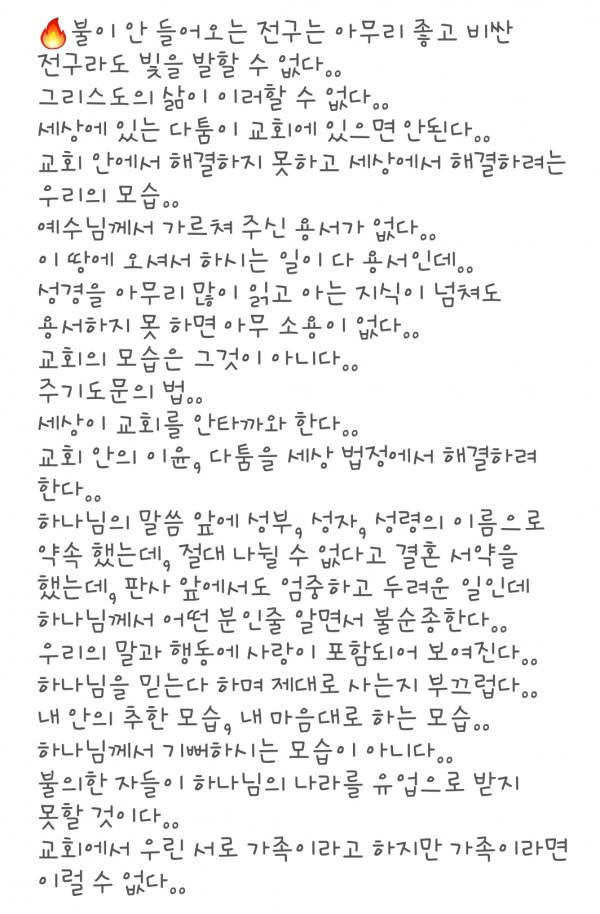 🔥불이 안 들어오는 전구는 아무리 좋고 비싼
전구라도 빛을 발할 수 없다。。
그리스도의 삶이 이러할 수 없다。。
세상에 있는 다툼이 교회에 있으면 안된다。。
교회 안에서 해결하지 못하고 세상에서 해결하려는
우리의 모습。。
예수님께서 가르쳐 주신 용서가 없다。。
이 땅에 오셔서 하시는 일이 다 용서인데。。
성경을 아무리 많이 읽고 아는 지식이 넘쳐도
용서하지 못 하면 아무 소용이 없다。。
교회의 모습은 그것이 아니다。。
주기도문의 법。。
세상이 교회를 안타까와 한다。。
교회 안의 이윤, 다툼을 세상 법정에서 해결하려
한다。。
하나님의 말씀 앞에 성부, 성자, 성령의 이름으로
약속 했는데, 절대 나뉠 수 없다고 결혼 서약을
했는데, 판사 앞에서도 엄중하고 두려운 일인데
하나님께서 어떤 분인줄 알면서 불순종한다。。
우리의 말과 행동에 사랑이 포함되어 보여진다。。
하나님을 믿는다 하며 제대로 사는지 부끄럽다。。
내 안의 추한 모습, 내 마음대로 하는 모습。。
하나님께서 기뻐하시는 모습이 아니다。。
불의한 자들이 하나님의 나라를 유업으로 받지
못할 것이다。。
교회에서 우린 서로 가족이라고 하지만 가족이라면
이럴 수 없다。。